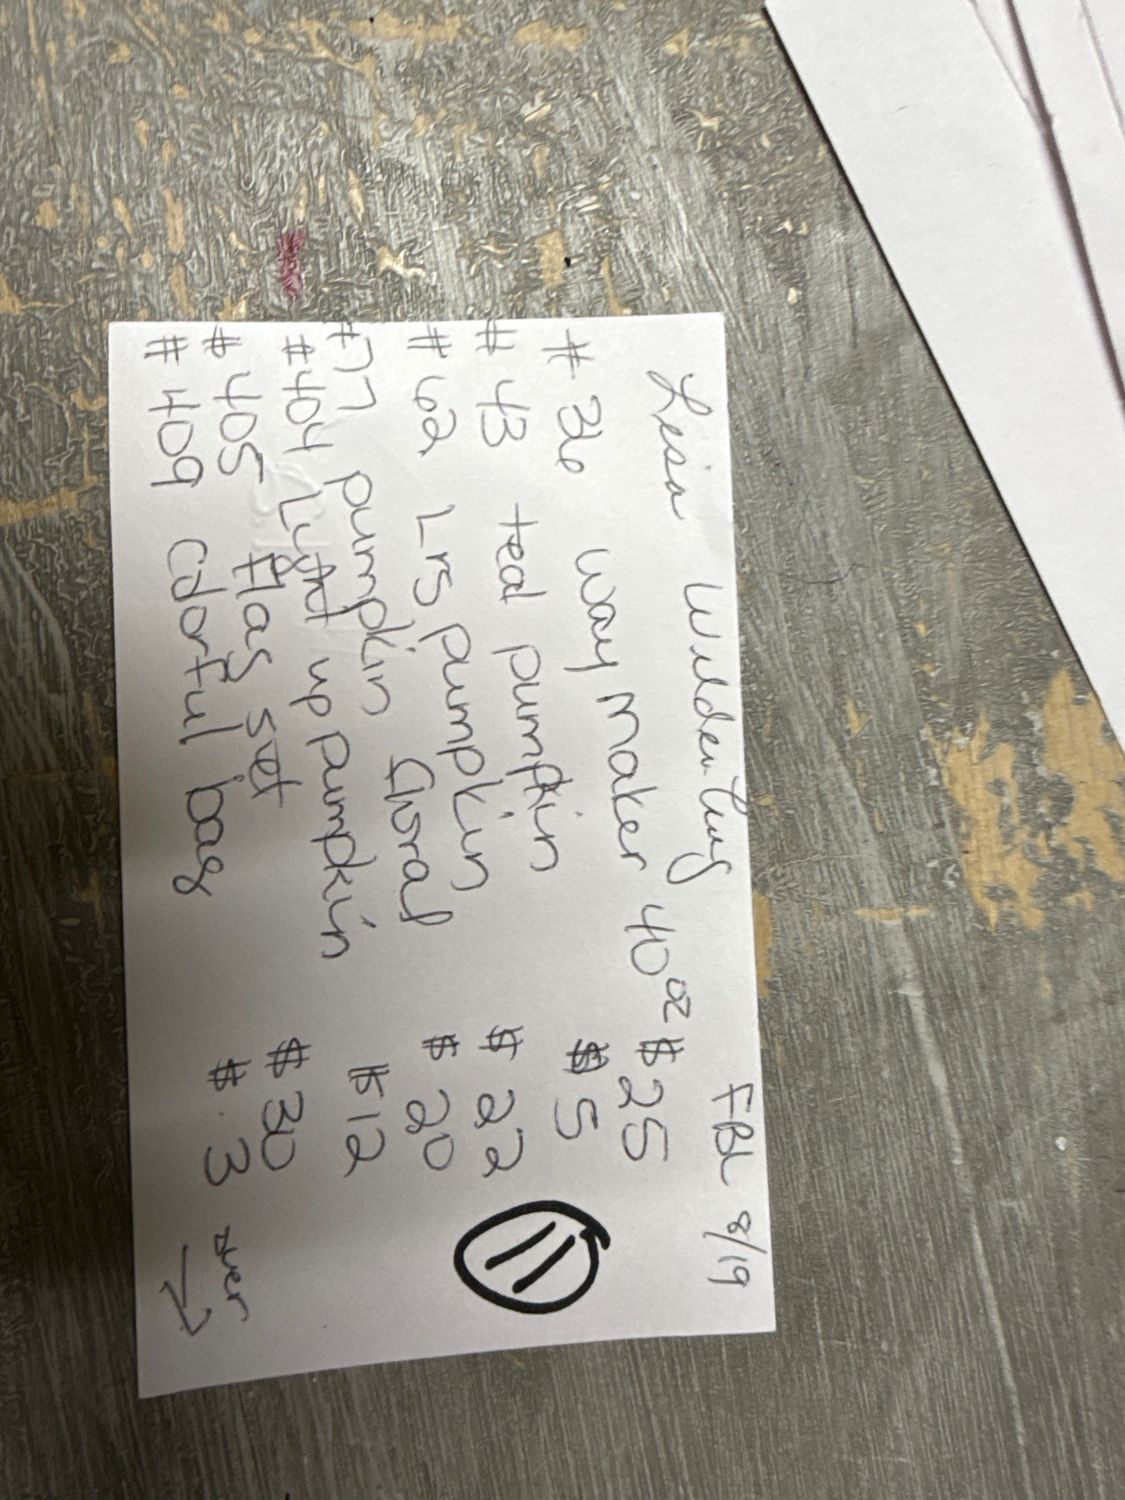 FBL 8/19
#36 way maker 40oz $25
#43 teal pumpkin $5
#62 Lrg pumpkin $22
#77 pumpkin floral $20
#404 Light up pumpkin $12
#405 flag set $30
#409 colorful bag $3
over →
11